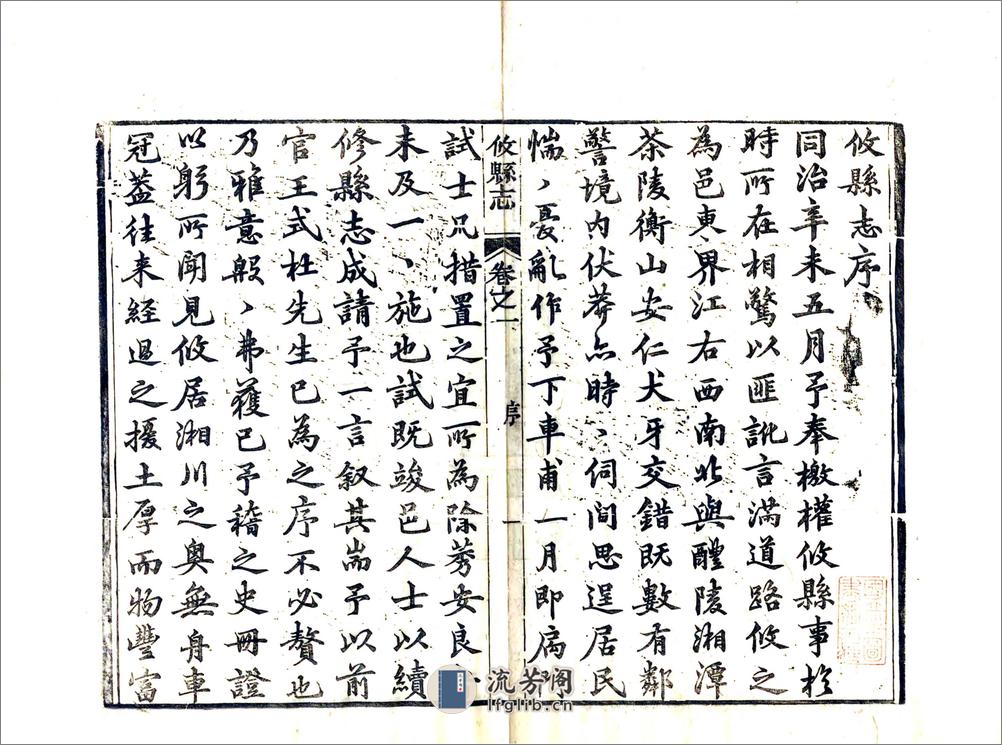 攸縣志序
同治辛未五月予奉檄權攸縣事於
時所在相驚以匪訛言滿道路攸之
為邑東、界江右西南北與醴陵湘潭
茶陵衡山安仁犬牙交錯既數有鄰
警境内伏莽亦時、伺間思逞居民
惴、憂亂作予下車甫一月即扃
攸縣志
卷之一
序
一
試士凡措置之宜所為除莠安良
未及一、施也試既竣邑人士以續
修縣志成請予一言叙其耑予以前
官王式杜先生已為之序不必贅也
乃雅意殷、弗獲已予稽之史冊證
以躬所聞見攸居湘川之奥無舟車
冠葢往来經過之擾土厚而物豐富
流芳阁
lfglib.cn